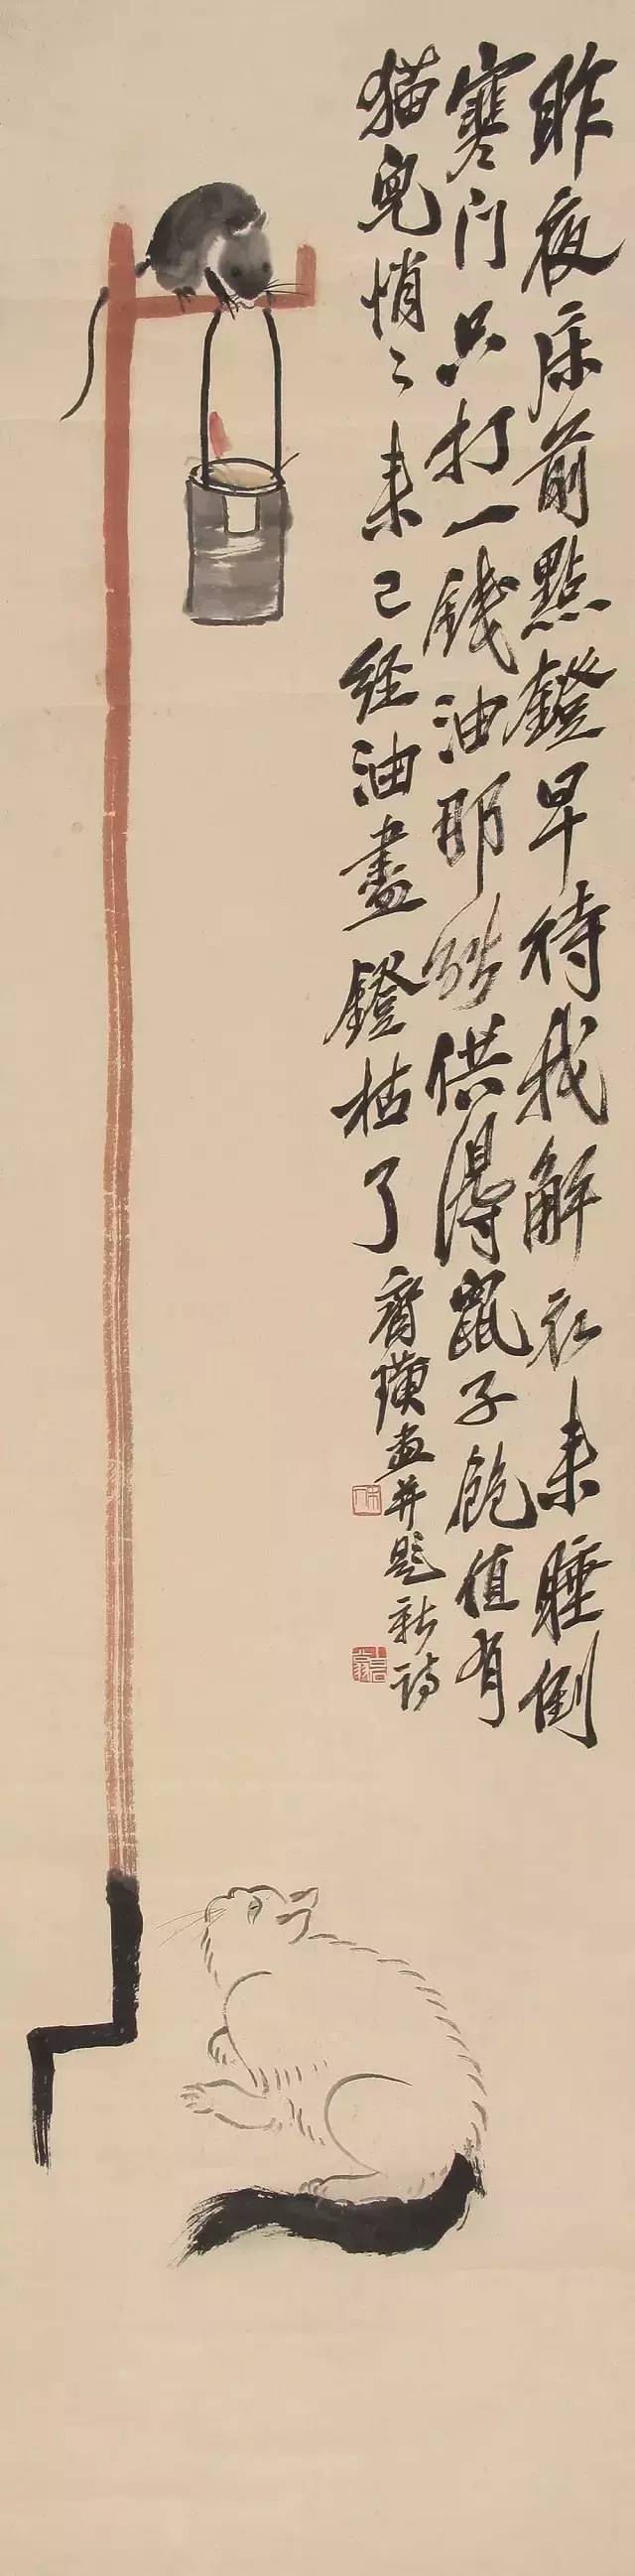 昨夜床前點鐙早待我解衣来睡倒
寒门只打一钱油那能供得鼠子飽值有
猫兒悄〻来已经油盡鐙枯了
齊璜画并題新詩